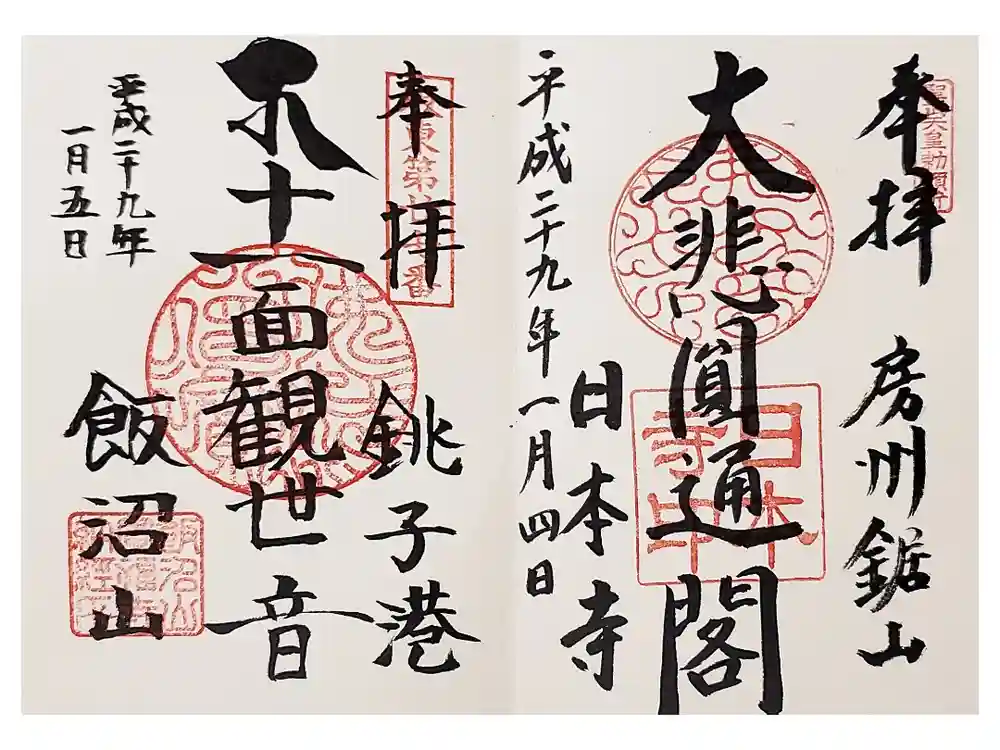 聖武天皇勅願所
奉拝 房州鋸山
大悲圓通閣
日本寺印
日本寺
平成二十九年一月四日
坂東第廿七番
奉拝 銚子港
十一面観世音
飯沼山
平成二十九年
一月五日